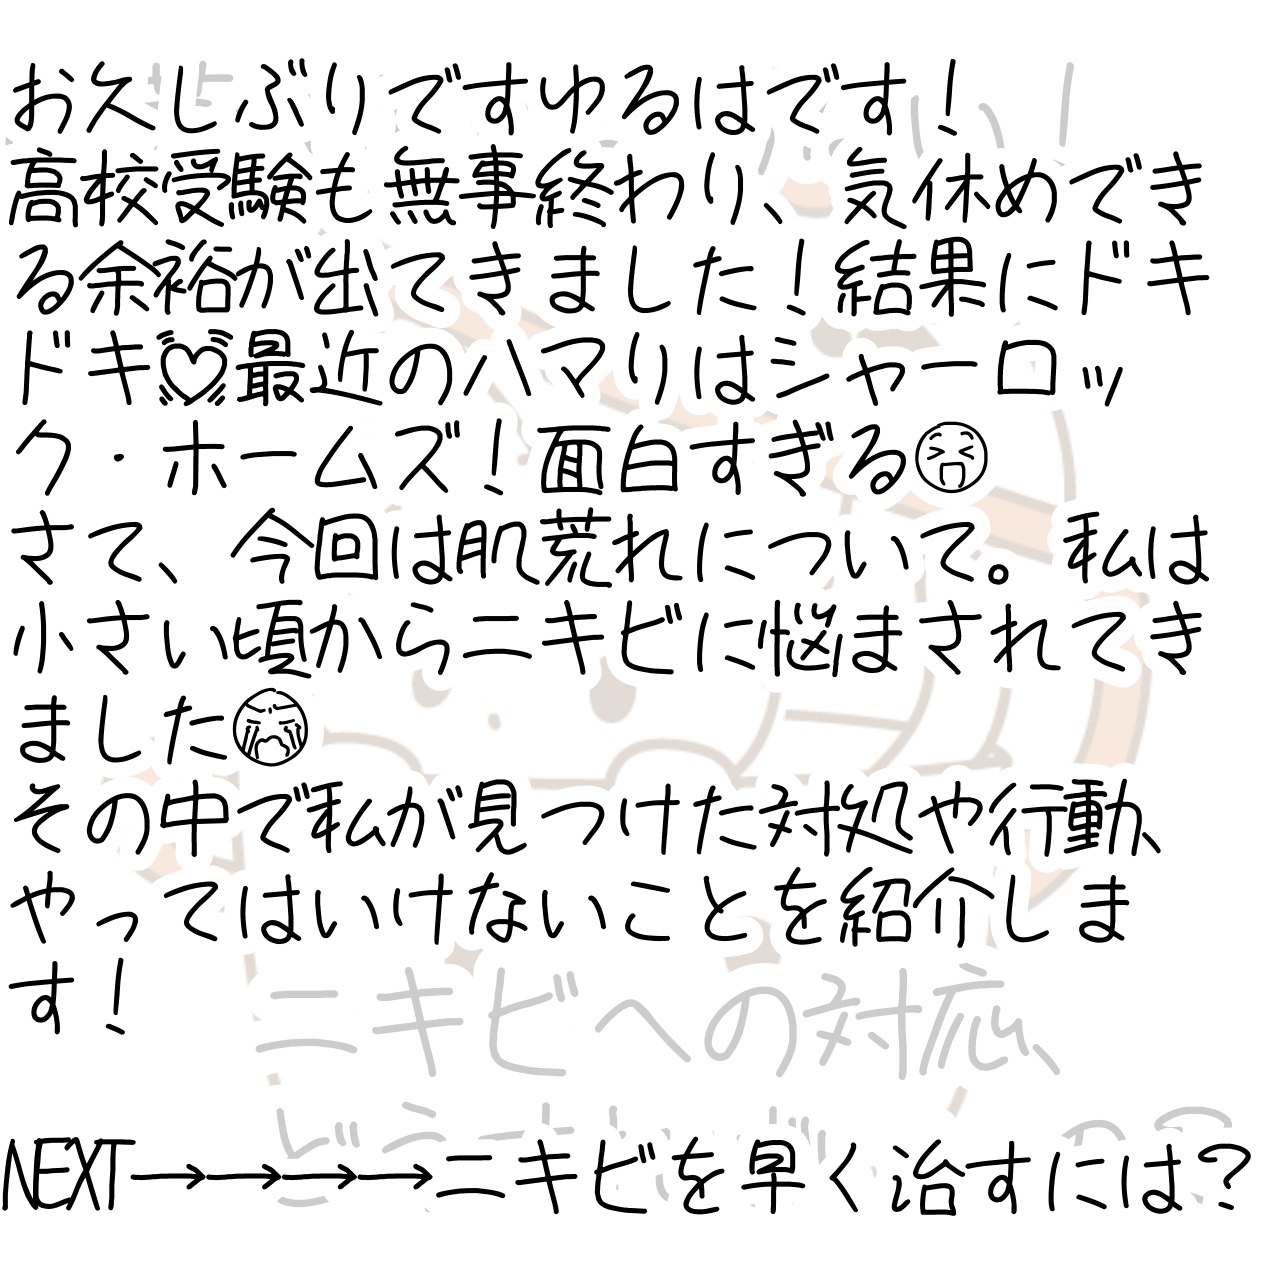 お久しぶりですゆるはです！
高校受験も無事終わり、気休めでき
る余裕が出てきました！結果にドキ
ドキ💓最近のハマりはシャーロッ
ク・ホームズ！面白すぎる😫
さて、今回は肌荒れについて。私は
小さい頃からニキビに悩まされてき
ました😭
その中で私が見つけた対処や行動、
やってはいけないことを紹介しま
す！
ニキビへの対応、
NEXT→→→→ニキビを早く治すには？